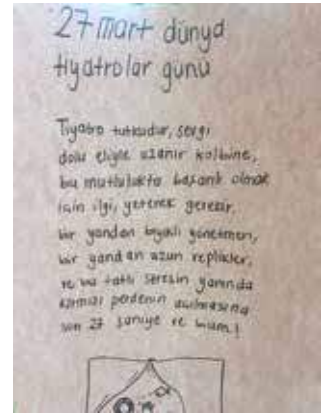 27 mart dünya
tiyatrolar günü
Tiyatro tutkudur, sevgi
dolu eliyle uzanır kalbine,
bu mutlulukta başarılı olmak
için ilgi, yetenek gerekir.
bir yandan bıyıklı yönetmen,
bir yandan uzun replikler,
ve bu tatlı stresin yanında
kırmızı perdenin açılmasına
son 27 saniye ve